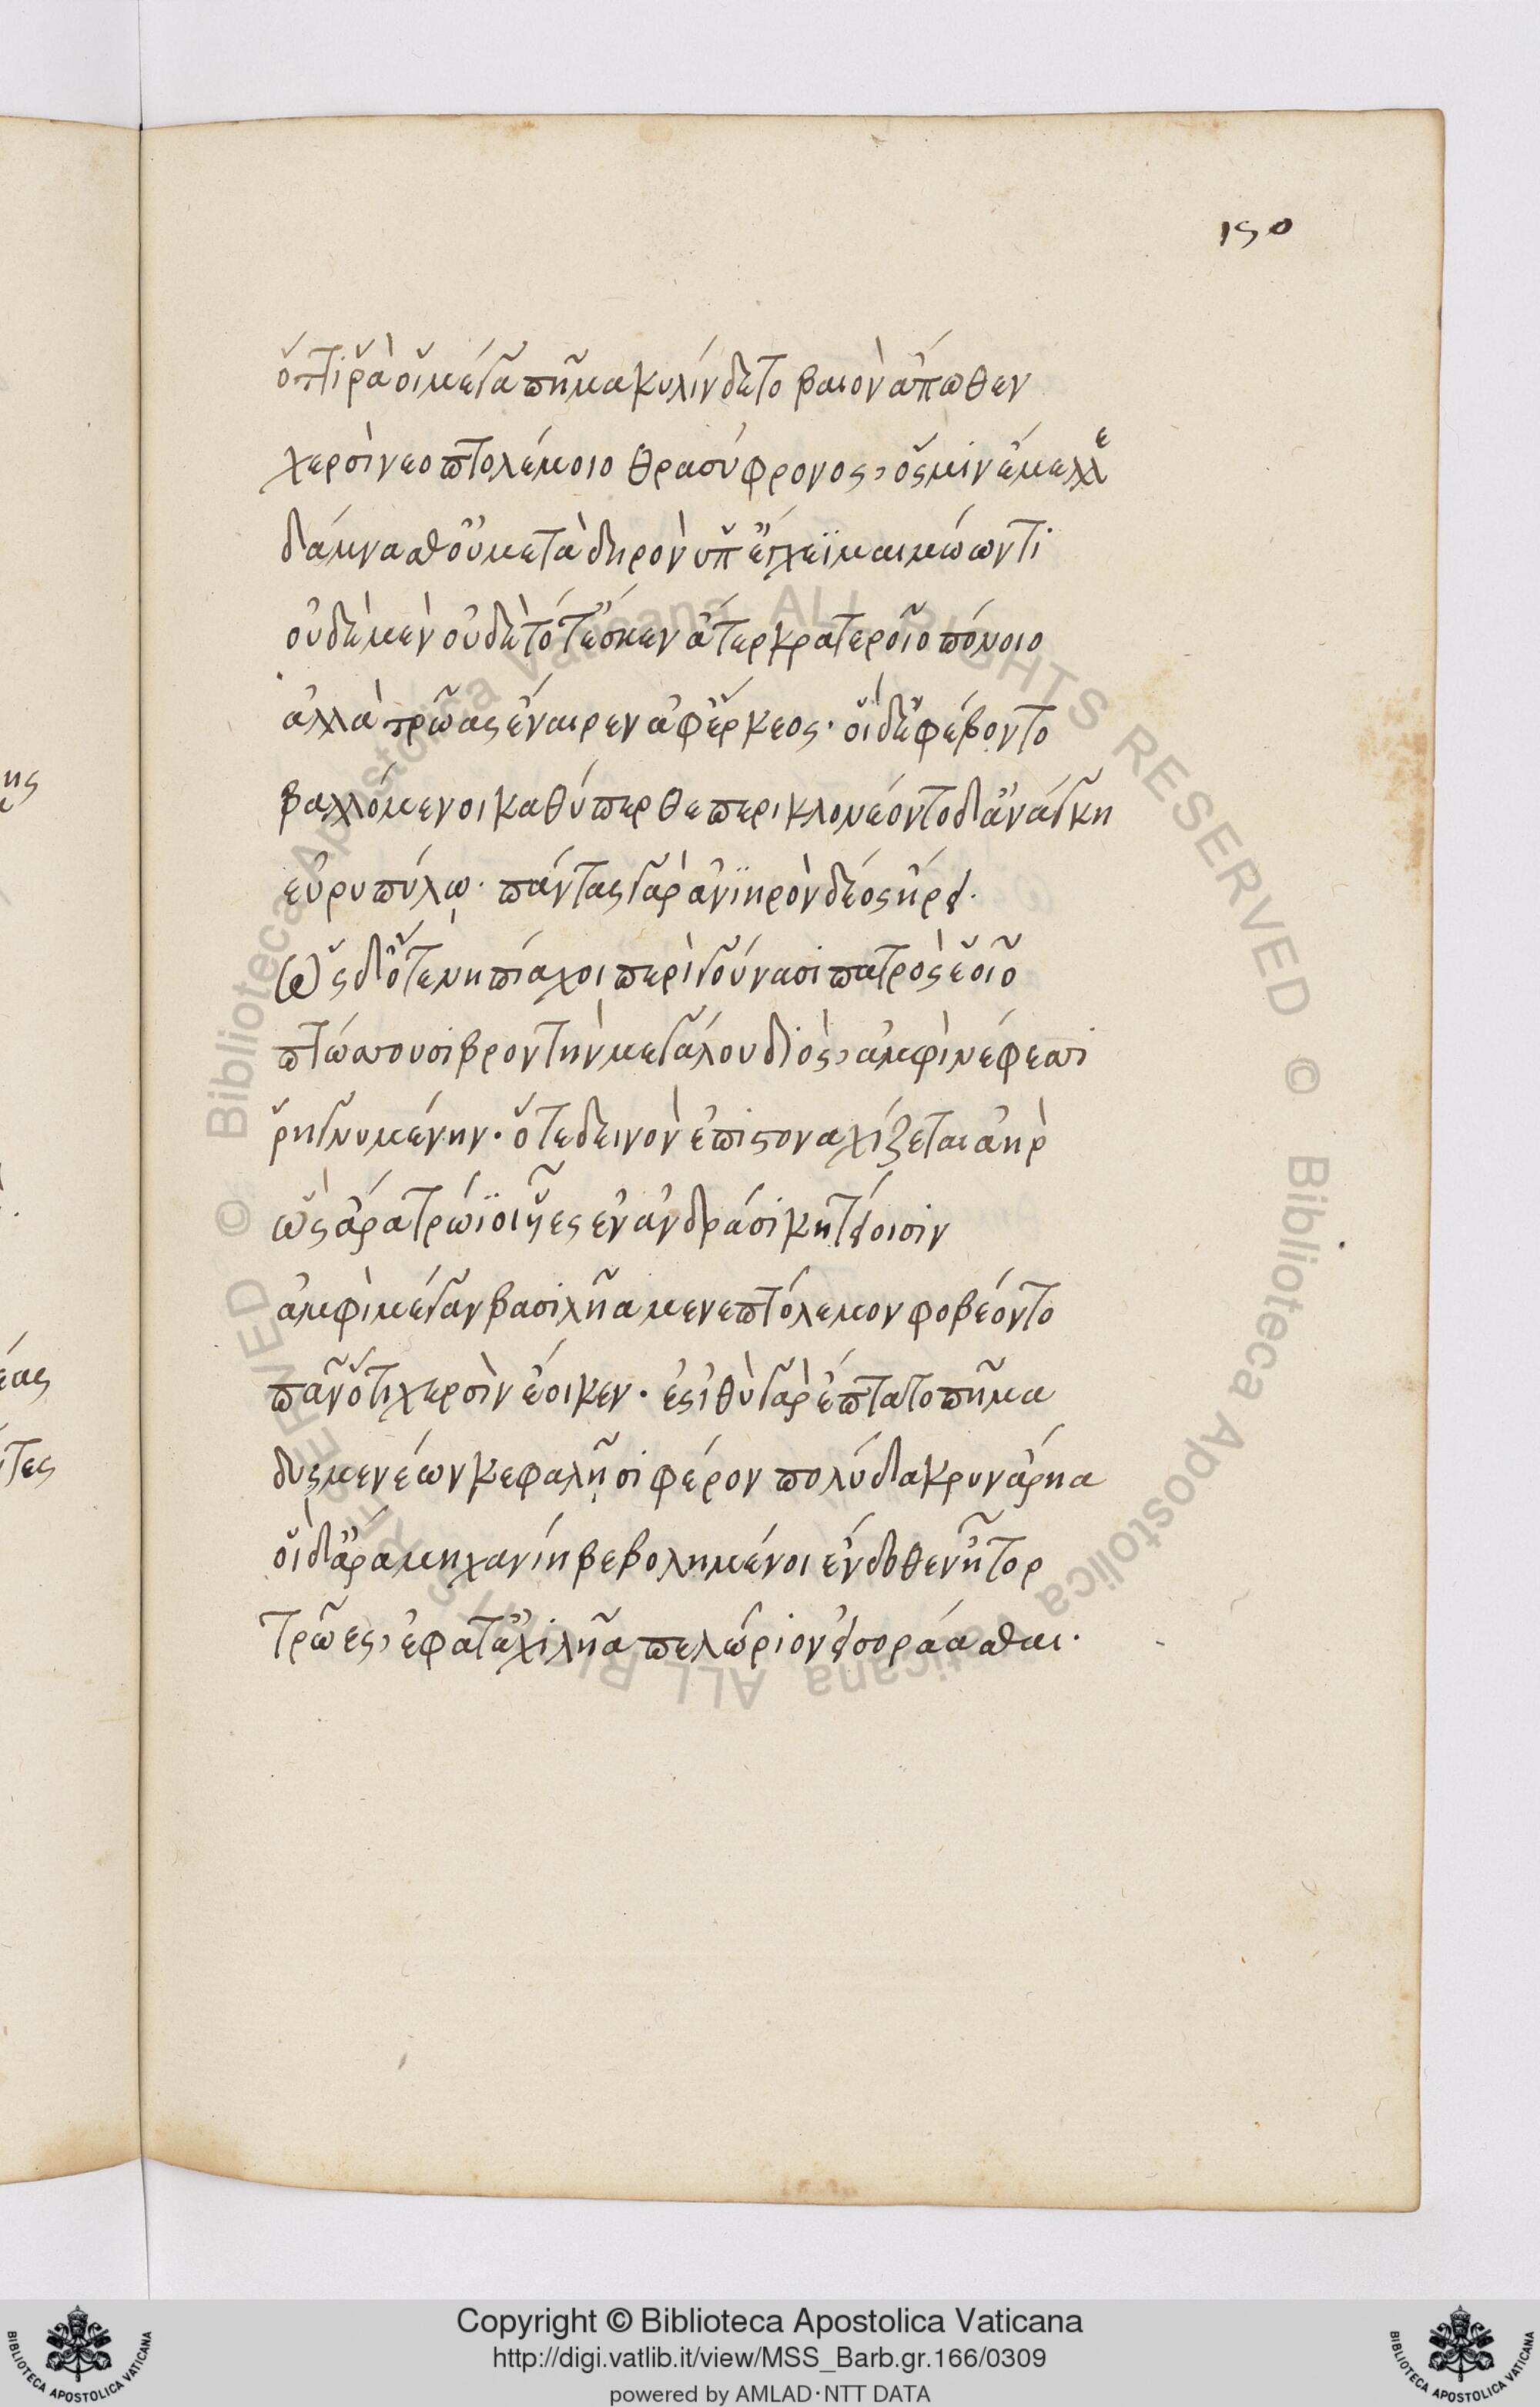 150
ὅττι ῥά οἱ μέγα πῆμα κυλίνδετο βαιὸν ἄπωθεν
χερσὶ νεοπτολέμοιο θρασύφρονος, ὅς μιν ἔμελλε
δάμνασθ' οὐ μετὰ δηρὸν ὑπ' ἔγχεϊ μαιμώωντι
οὐδὲ μὲν οὐδὲ τότ' ἔσκεν ἄτερ κρατεροῖο πόνοιο
ἀλλὰ τρῶας ἔναιρεν ἀφ' ἕρκεος· οἱ δ' ἐφέβοντο
βαλλόμενοι καθύπερθε περικλονέοντο δ' ἀνάγκη
εὐρυπύλῳ· πάντας γὰρ ἀνιηρὸν δέος ᾕρει.
ὡς δ' ὅτε νηπίαχοι περὶ γούνασι πατρὸς ἑοῖο
πτώσσουσι βροντὴν μεγάλου διὸς, ἀμφὶ νέφεσσι
ῥηγνυμένην· ὅτε δεινὸν ἐπιστοναχίζεται ἀὴρ
ὣς ἄρα τρώϊοι υἷες ἐν ἀνδράσι κητείοισιν
ἀμφὶ μέγαν βασιλῆα μενεπτόλεμον φοβέοντο
πᾶν ὅτι χερσὶν ἔοικεν· ἐς ἰθὺ γὰρ ἔπτατο πῆμα
δυσμενέων κεφαλῇσι φέρον πολύδακρυν ἄρηα
οἱ δ' ἄρ' ἀμηχανίη βεβολημένοι ἔνδοθεν ἦτορ
Τρῶες, ἔφαντ' ἀχιλῆα πελώριον εἰσοράασθαι.
Copyright © Biblioteca Apostolica Vaticana
http://digi.vatlib.it/view/MSS_Barb.gr.166/0309
powered by AMLAD·NTT DATA